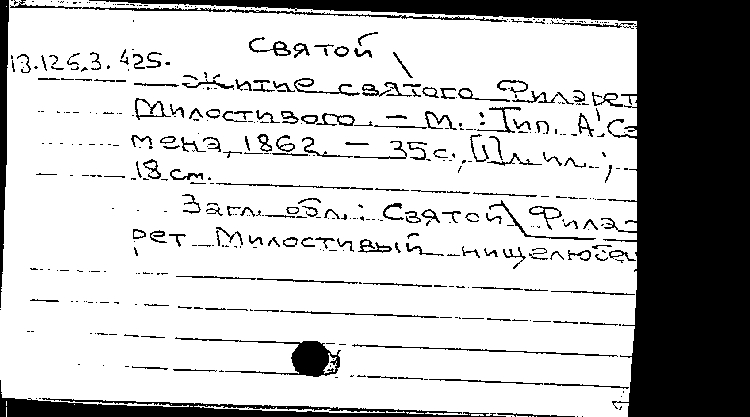 Святой \
13.125.3.425.
Житие святого Филарет
Милостивого. – М.: Тип. А. Се
мена, 1862. – 35 с., [1] л. ил.;
18 см.
Загл. обл.: Святой \ Фила-
рет Милостивый нищелюбец